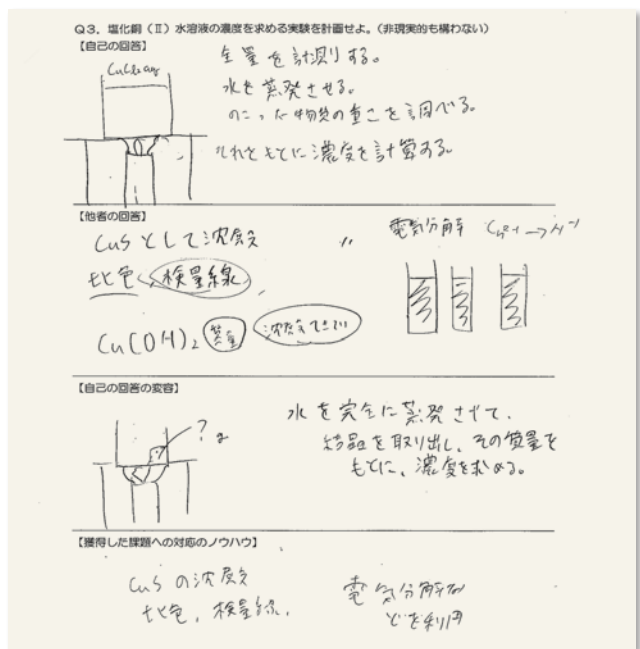 Q3．塩化銅（Ⅱ）水溶液の濃度を求める実験を計画せよ。（非現実的も構わない）
【自己の回答】
CuCl2 aq
全量を計測する。
水を蒸発させる。
のこった物質の重さを調べる。
それをもとに濃度を計算する。
【他者の回答】
CuSとして沈殿
〃
電気分解
比色，検量線
Cu(OH)2
沈殿
【自己の回答の変容】
? g
水を完全に蒸発させて、
結晶を取り出し、その質量を
もとに、濃度を求める。
【獲得した課題への対応のノウハウ】
CuSの沈殿
比色，検量線，
電気分解な
どを利用